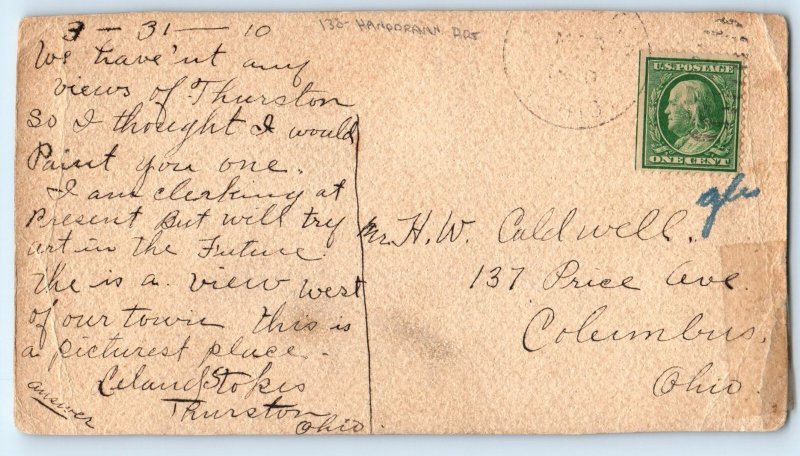 3 - 31 - 10
130- HANDDRAWN ART
We have'nt any
views of Thurston
So I thought I would
Paint you one.
I am clerking at
Present But will try
art in the Future.
the is a view west
of our town this is
a picturest place.
Leland Stokes
Thurston
Ohio.
answer
U.S. POSTAGE
ONE CENT
Mr. H. W. Caldwell.
137 Price Ave.
Columbus.
Ohio.